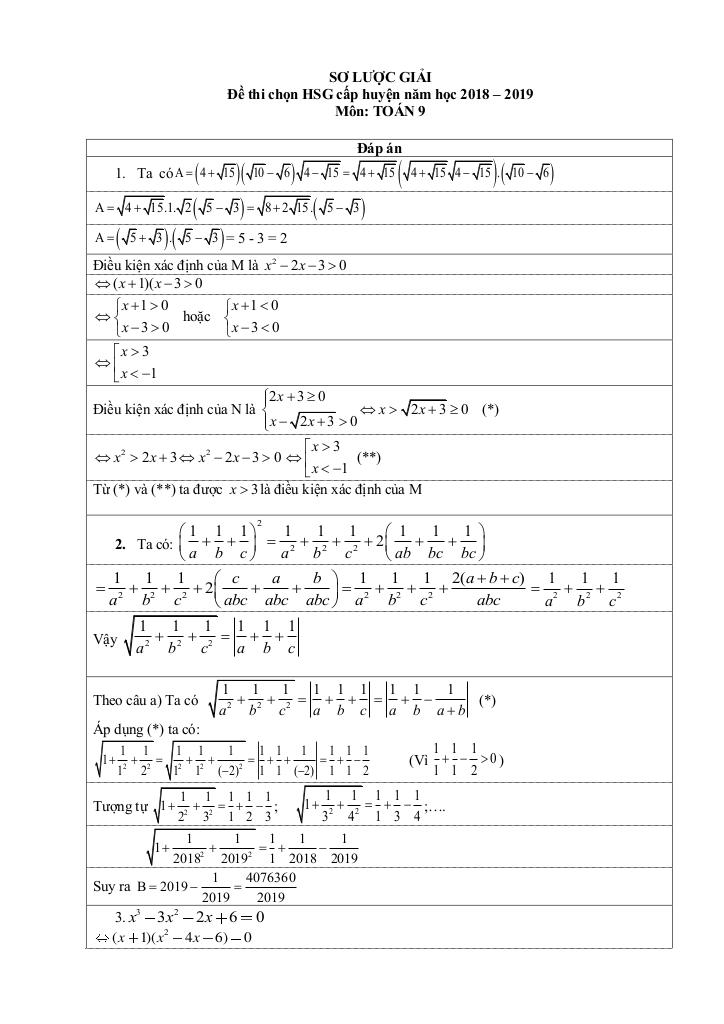 SƠ LƯỢC GIẢI
Đề thi chọn HSG cấp huyện năm học 2018 – 2019
Môn: TOÁN 9
Đáp án
1. Ta có A = (4+√15)(√10−√6)√(4−√15) = √(4+√15)(√(4+√15)√(4−√15)).(√10−√6)
A = √(4+√15).1.√2(√5−√3) = √(8+2√15).(√5−√3)
A = (√5+√3).(√5−√3) = 5 - 3 = 2
Điều kiện xác định của M là x² − 2x − 3 > 0
⇔ (x+1)(x−3 > 0
⇔ {x+1 > 0; x−3 > 0 hoặc {x+1 < 0; x−3 < 0
⇔ [x > 3; x < −1
Điều kiện xác định của N là {2x+3 ≥ 0; x − √(2x+3) > 0 ⇔ x > √(2x+3) ≥ 0 (*)
⇔ x² > 2x+3 ⇔ x² − 2x − 3 > 0 ⇔ [x > 3; x < −1 (**)
Từ (*) và (**) ta được x > 3 là điều kiện xác định của M
2. Ta có: (1/a + 1/b + 1/c)² = 1/a² + 1/b² + 1/c² + 2(1/ab + 1/bc + 1/bc)
= 1/a² + 1/b² + 1/c² + 2(c/abc + a/abc + b/abc) = 1/a² + 1/b² + 1/c² + 2(a+b+c)/abc = 1/a² + 1/b² + 1/c²
Vậy √(1/a² + 1/b² + 1/c²) = |1/a + 1/b + 1/c|
Theo câu a) Ta có √(1/a² + 1/b² + 1/c²) = |1/a + 1/b + 1/c| = |1/a + 1/b − 1/(a+b)| (*)
Áp dụng (*) ta có:
√(1 + 1/1² + 1/2²) = √(1/1² + 1/1² + 1/(−2)²) = |1/1 + 1/1 + 1/(−2)| = 1/1 + 1/1 − 1/2 (Vì 1/1 + 1/1 − 1/2 > 0)
Tượng tự √(1 + 1/2² + 1/3²) = 1/1 + 1/2 − 1/3; √(1 + 1/3² + 1/4²) = 1/1 + 1/3 − 1/4;….
√(1 + 1/2018² + 1/2019²) = 1/1 + 1/2018 − 1/2019
Suy ra B = 2019 − 1/2019 = 4076360/2019
3. x³ − 3x² − 2x + 6 = 0
⇔ (x+1)(x² − 4x − 6) − 0